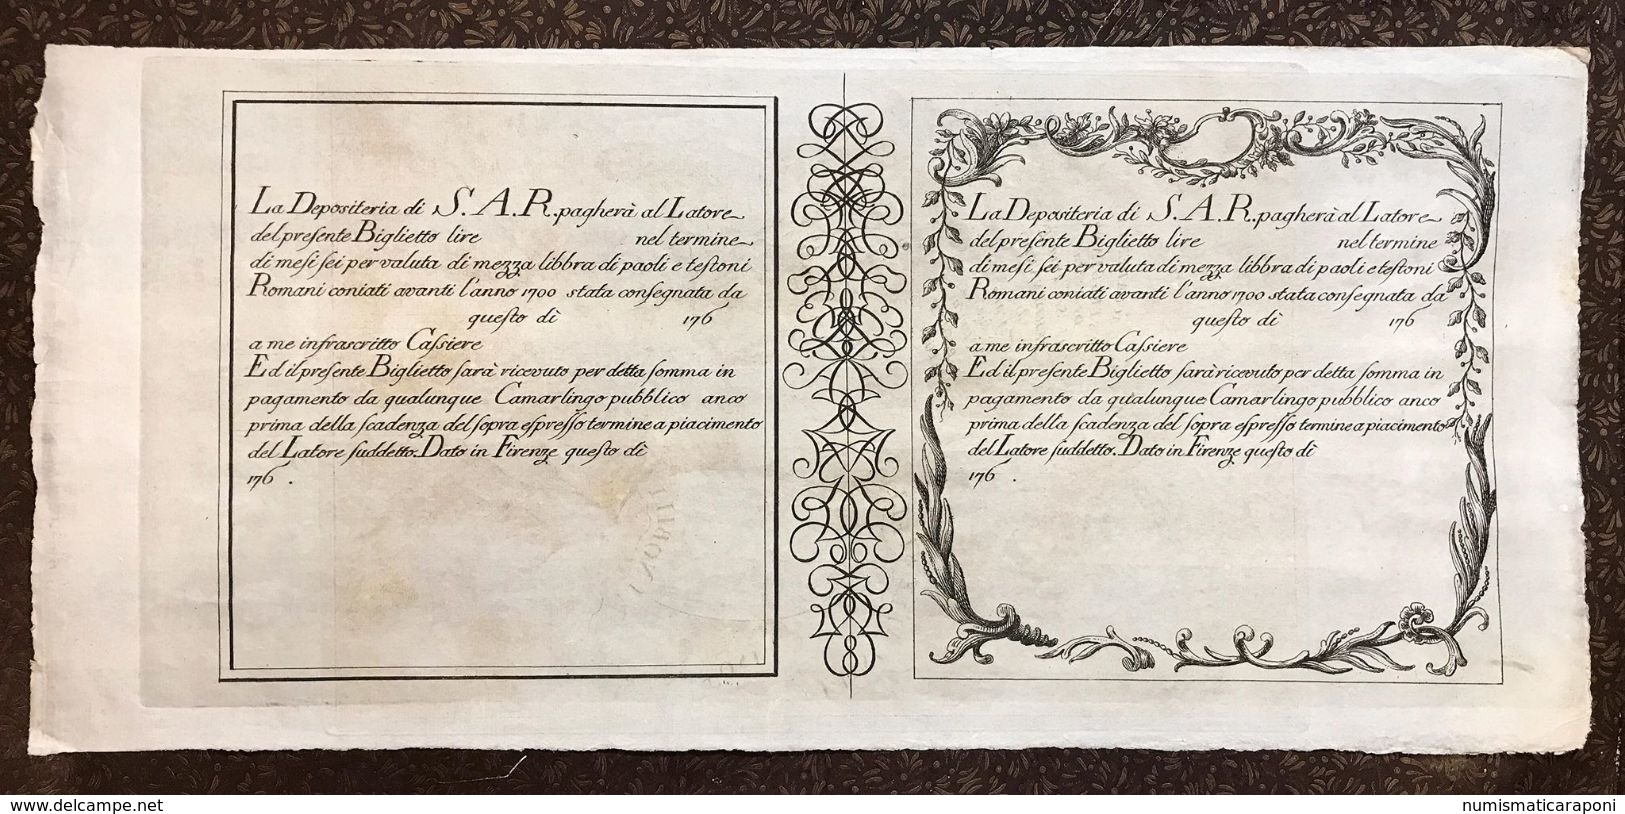 La Depositeria di S. A. R. pagherà al Latore
del preſente Biglietto lire nel termine
di meſi ſei per valuta di mezza libbra di paoli e teſtoni
Romani coniati avanti l'anno 1700 stata conſegnata da
queſto dì 176
a me infraſcritto Caſsiere
Ed il preſente Biglietto ſarà ricevuto per detta ſomma in
pagamento da qualunque Camarlingo pubblico anco
prima della ſcadenza del ſopra eſpreſſo termine a piacimento
del Latore ſuddetto. Dato in Firenze queſto dì
176 .
La Depositeria di S. A. R. pagherà al Latore
del preſente Biglietto lire nel termine
di meſi ſei per valuta di mezza libbra di paoli e teſtoni
Romani coniati avanti l'anno 1700 stata conſegnata da
queſto dì 176
a me infraſcritto Caſsiere
Ed il preſente Biglietto ſarà ricevuto per detta ſomma in
pagamento da qualunque Camarlingo pubblico anco
prima della ſcadenza del ſopra eſpreſſo termine a piacimento
del Latore ſuddetto. Dato in Firenze queſto dì
176 .
www.delcampe.net
numismaticaraponi